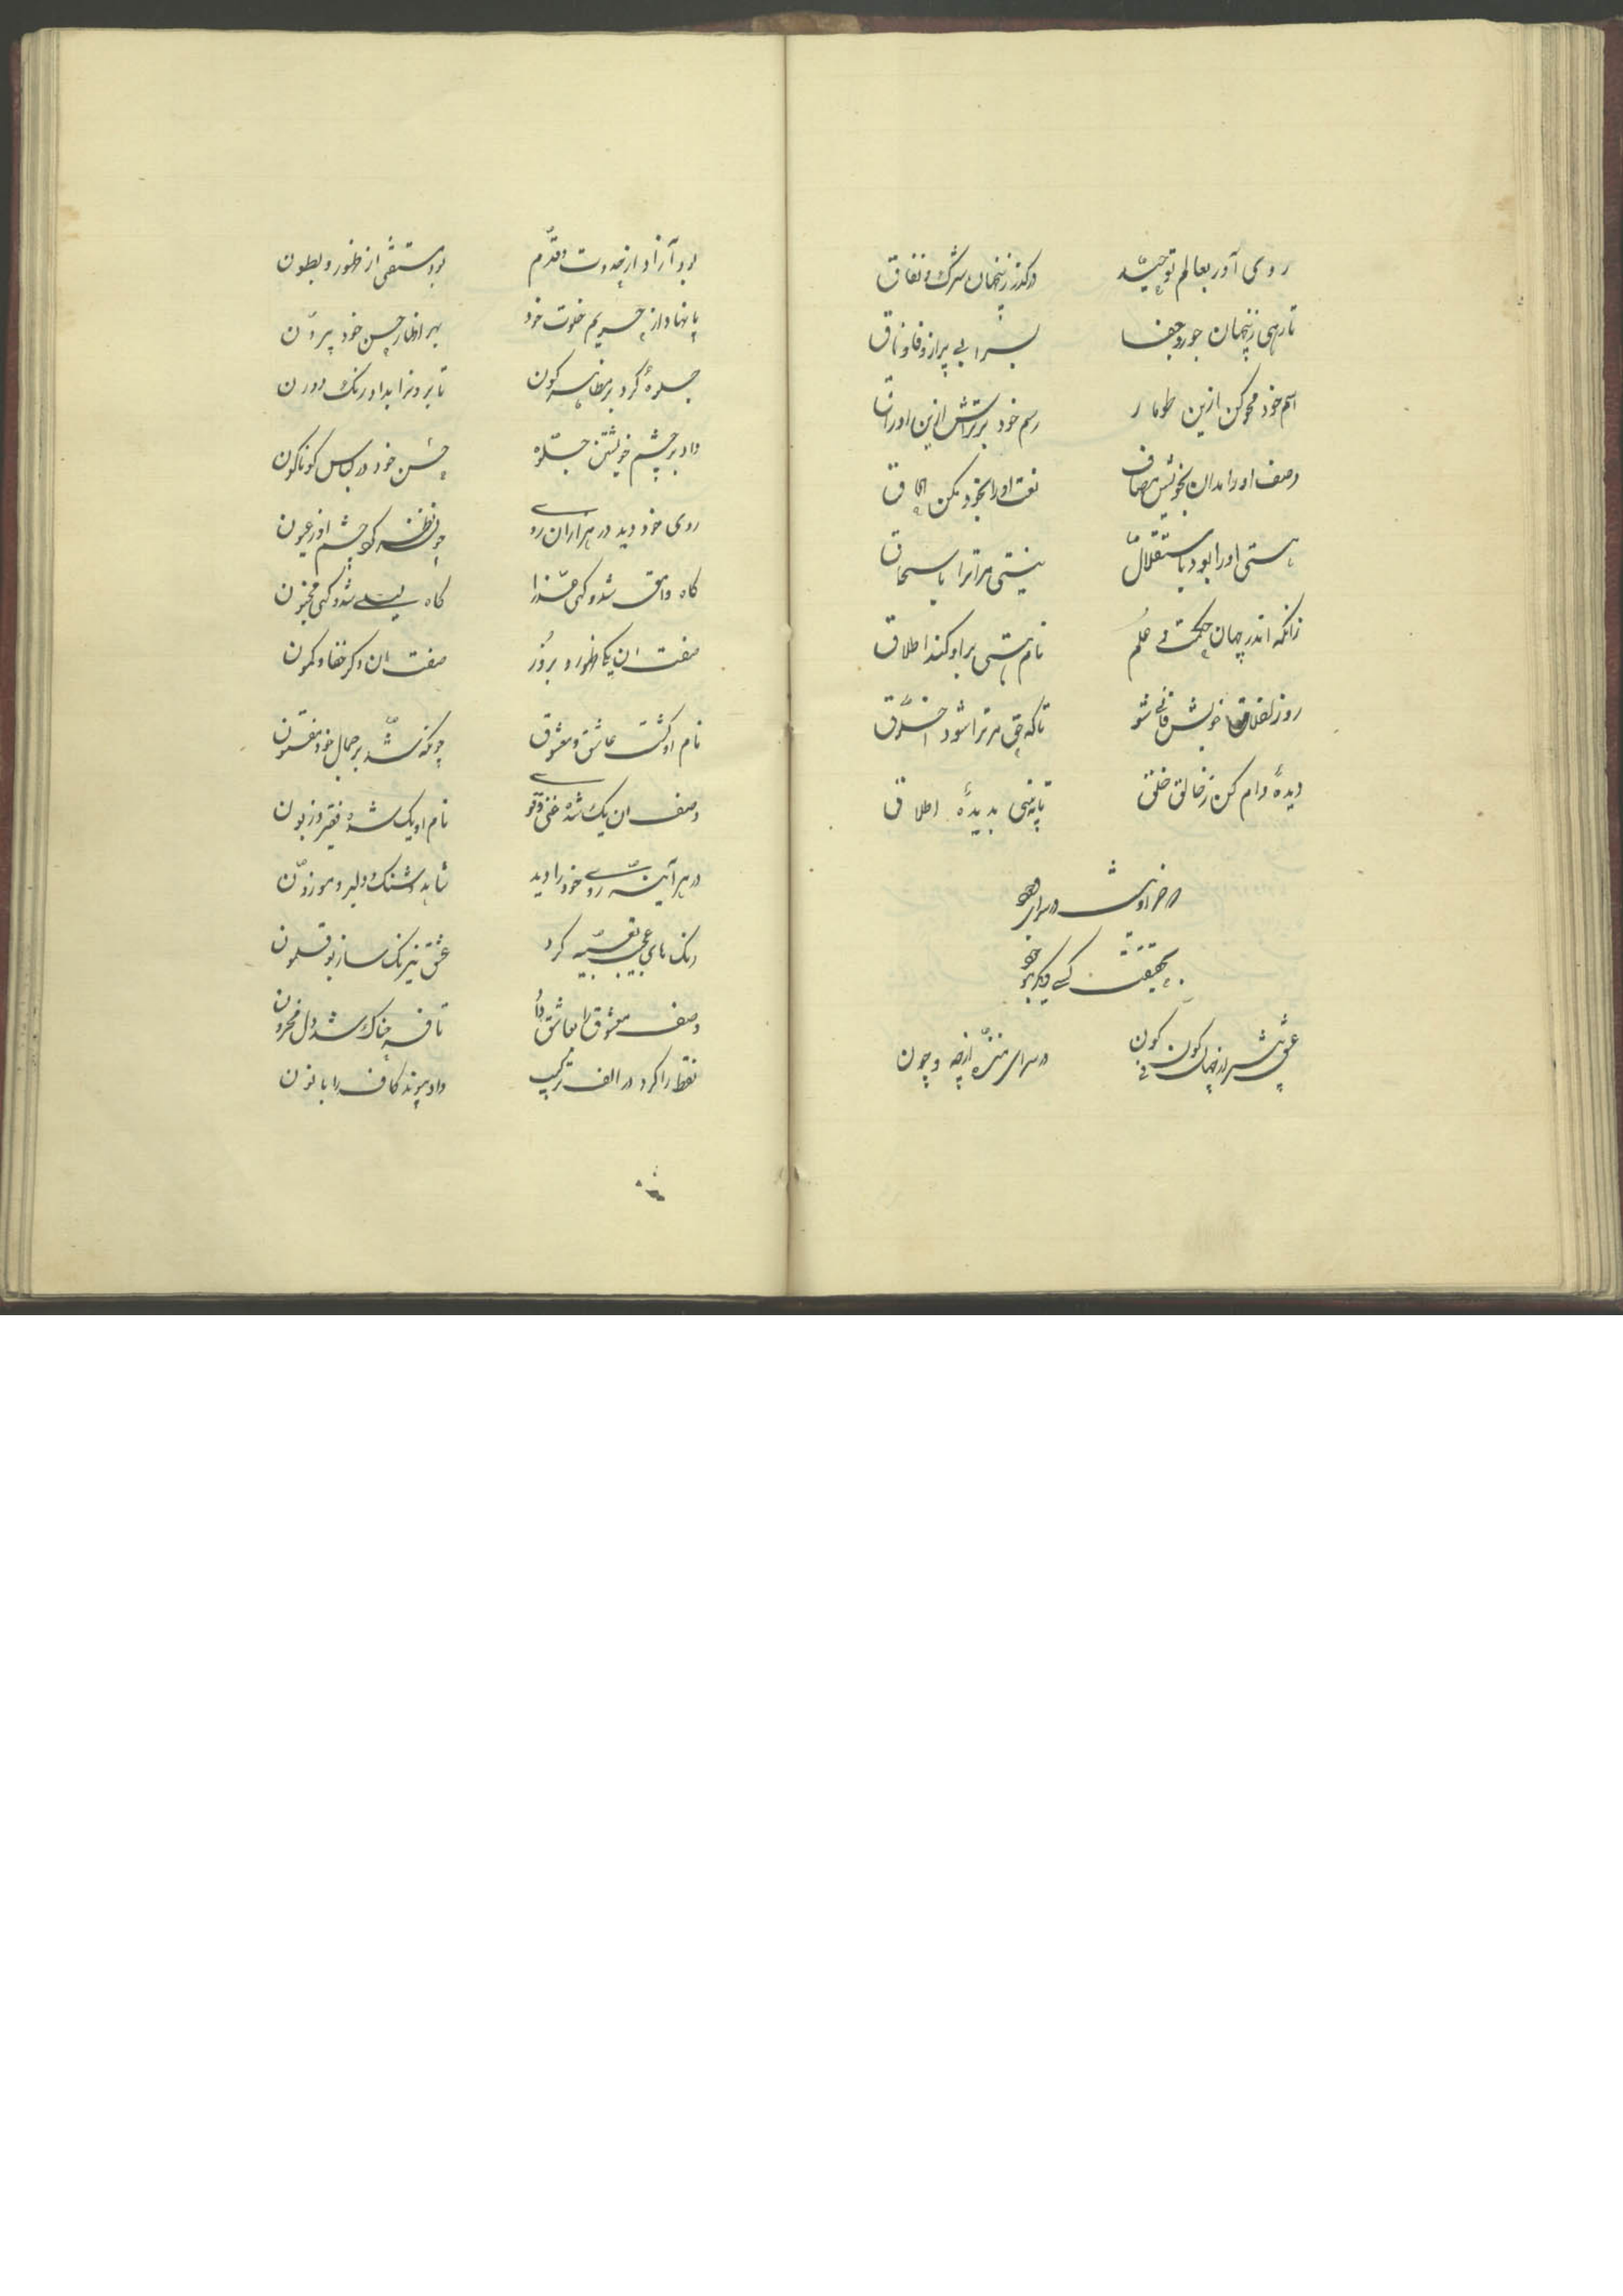 روی آور بعالم توحید درگذر زینجهان شرک و نفاق
تا رهی زینجهان جور و جفا بسرابی پر از وفا و وفاق
اسم خود محو کن ازین طومار رسم خود برتراش ازین اوراق
وصف او را مدان بخویش مضاف نعت او را بخود مکن الحاق
هستی او را بود باستقلال نیستی مر ترا باستحقاق
زانکه اندر جهان حکمت و علم نام هستی بر او کند اطلاق
رو ز اخلاق خویش فانی شو تا که حق مر ترا شود اخلاق
دیدهٔ وام کن ز خالق خلق تا به بینی بدیدهٔ اطلاق
که جز او نیست در سرای وجود
بحقیقت کسی دیگر موجود
عشق پیش از جهان کن فیکون در سرای منزه از چه و چون
بود آزاد از حدوث و قدم بود مستغنی از ظهور و بطون
پا نهاد از حریم خلوت خود بهر اظهار حسن خود بیرون
جلوهٔ کرد بر مظاهر کون تا برون را بداد رنگ درون
داد بر چشم خویشتن جلوه حسن خود در لباس گوناگون
روی خود دید در هزاران روی چون نظر کرد چشم او ز عیون
گاه وامق شد و گهی عذرا گاه لیلی شد و گهی مجنون
صفت این یکی ظهور و بروز صفت آن دگر خفا و کمون
نام او گشت عاشق و معشوق چونکه شد بر جمال خود مفتون
وصف این یک شده غنی و قوی نام او یک شده فقیر و زبون
در هر آئینه روی خود را دید شاهد شنگ و دلبر و موزون
رنگ های عجب تعبیه کرد عشق نیرنگ ساز بوقلمون
وصف معشوق را بعاشق داد تا فرحناک شد دل محزون
نقطه را کرد در الف ترکیب داد پیوند کاف را با نون